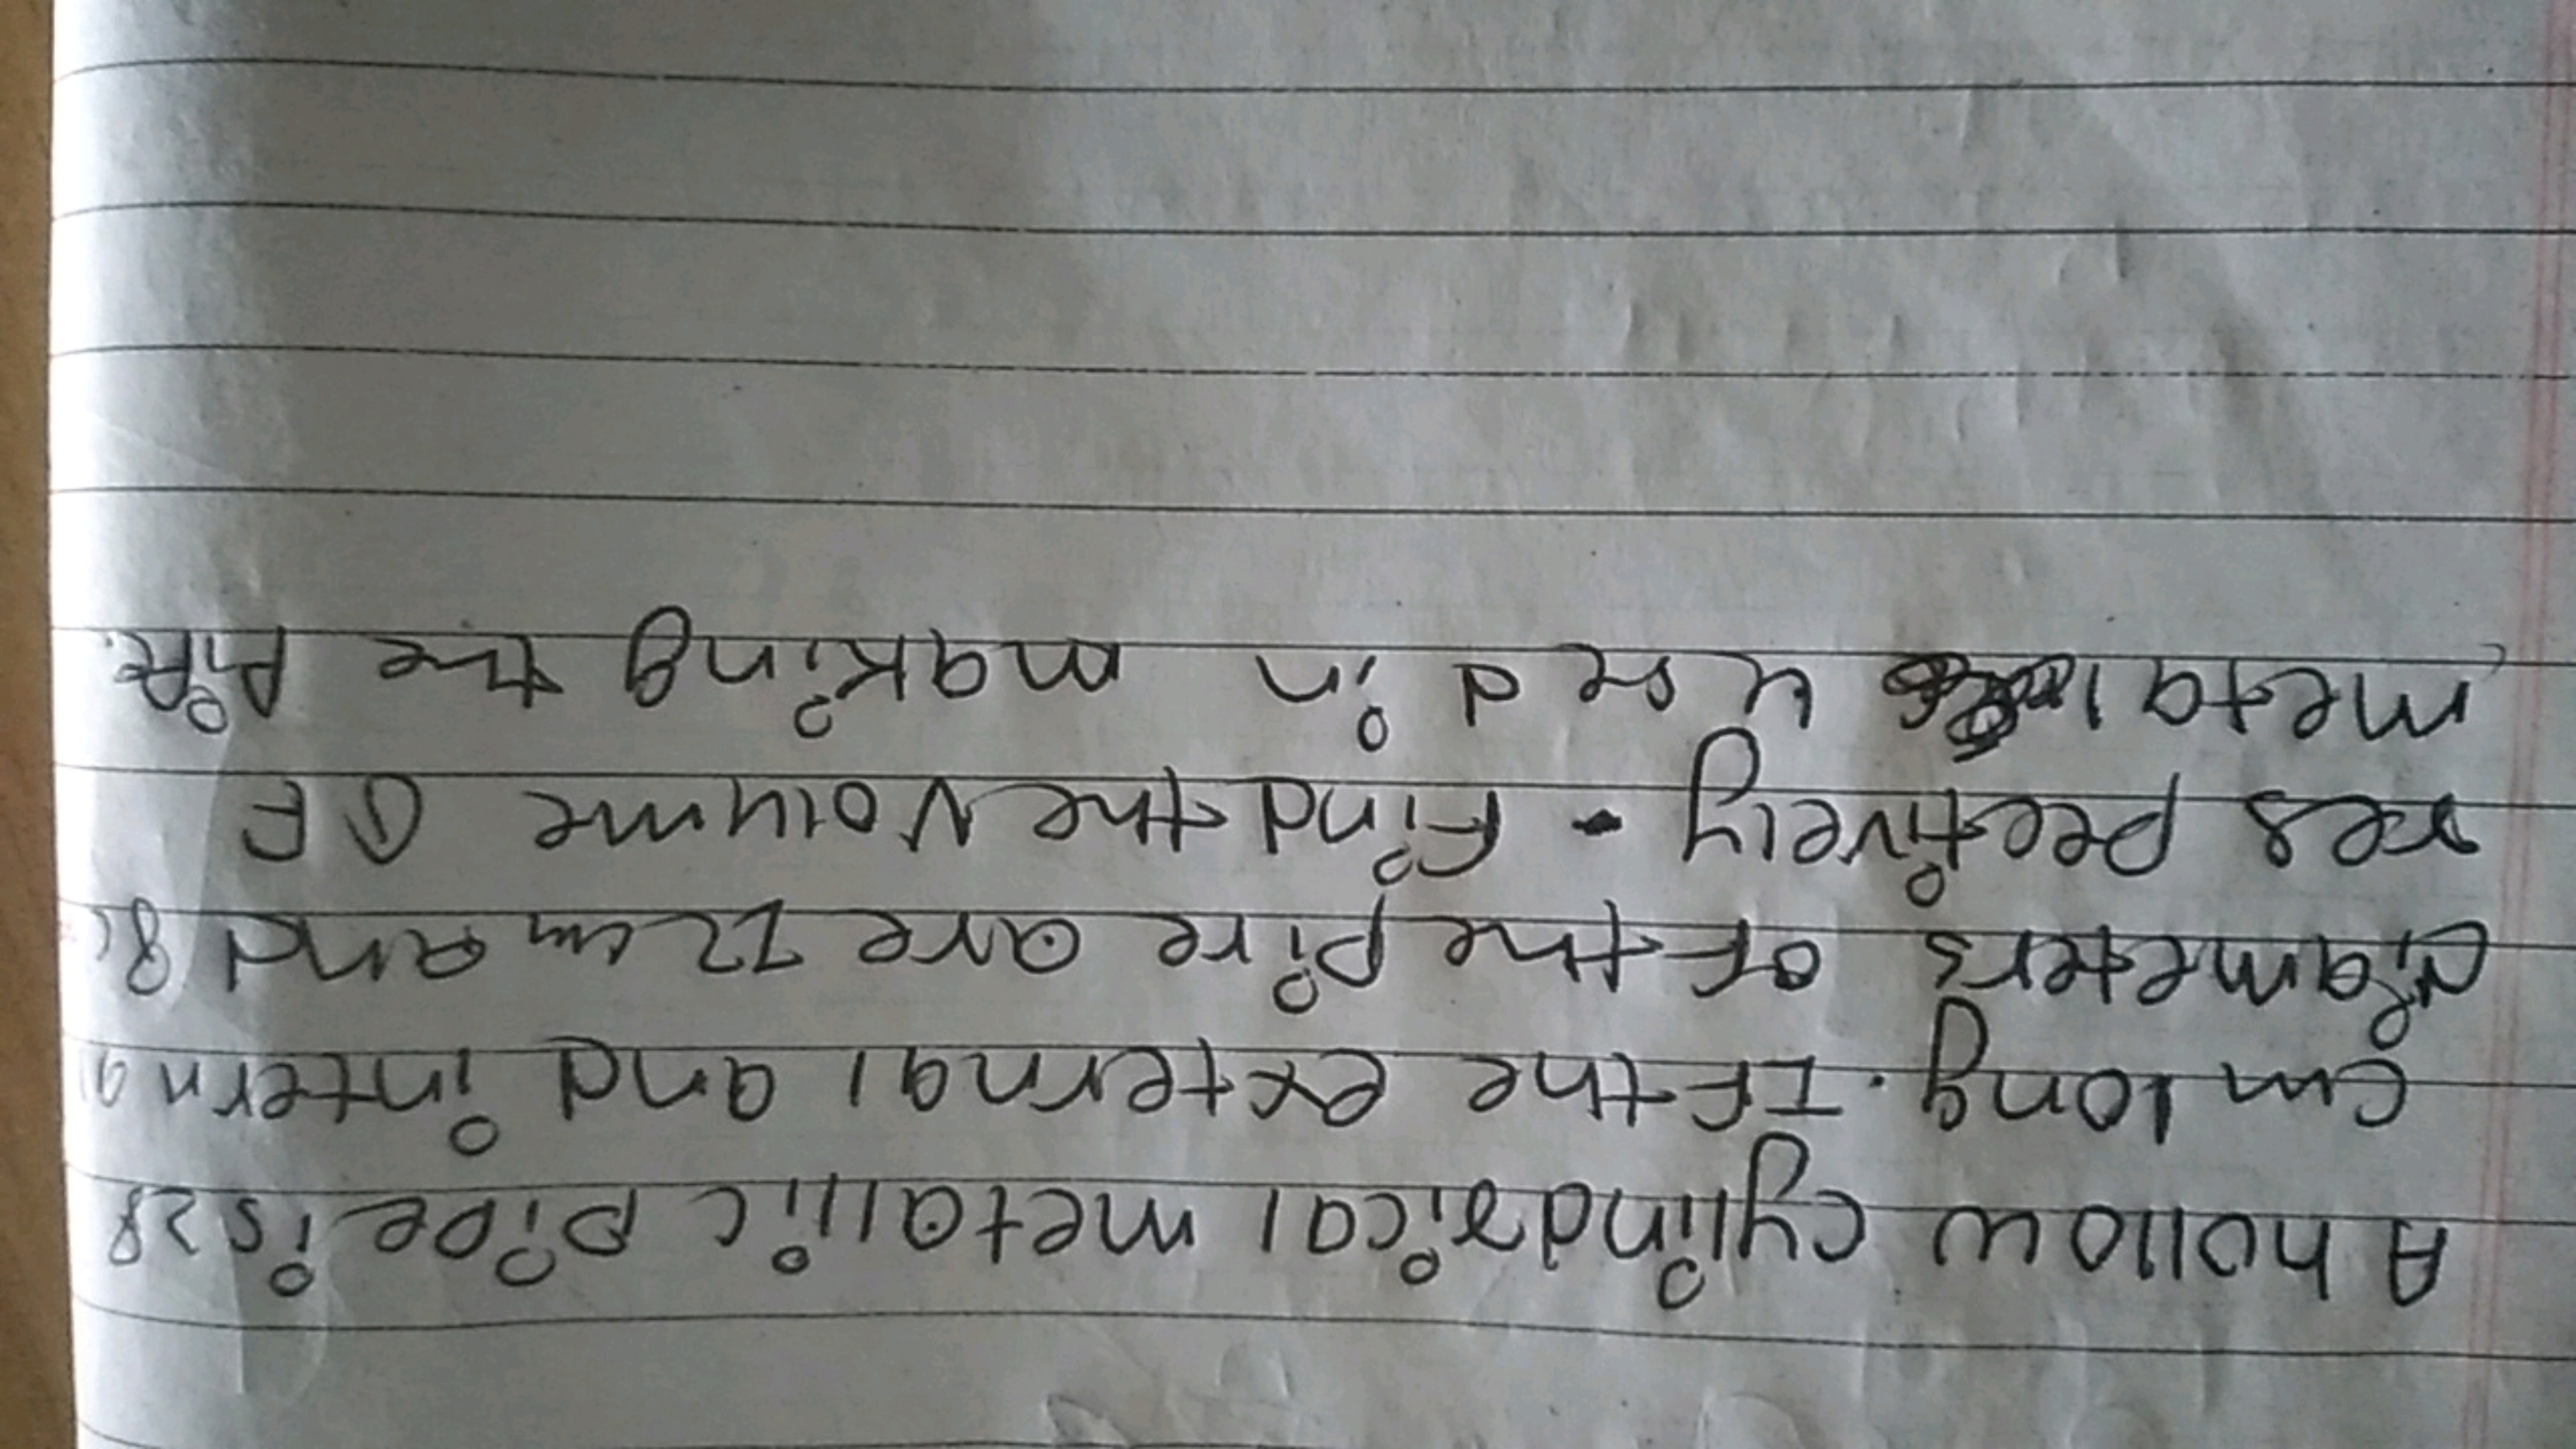 A hollow cylindrical metallic pipe is 28
cm long. If the external and internal
diameters of the pipe are 12 cm and 8c
respectively. Find the volume OF
metal used in making the pipe.